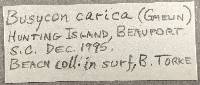 Busycon carica (Gmelin)
Hunting Island, Beaufort
S.C. Dec. 1995.
Beach coll. in surf, B. Torke